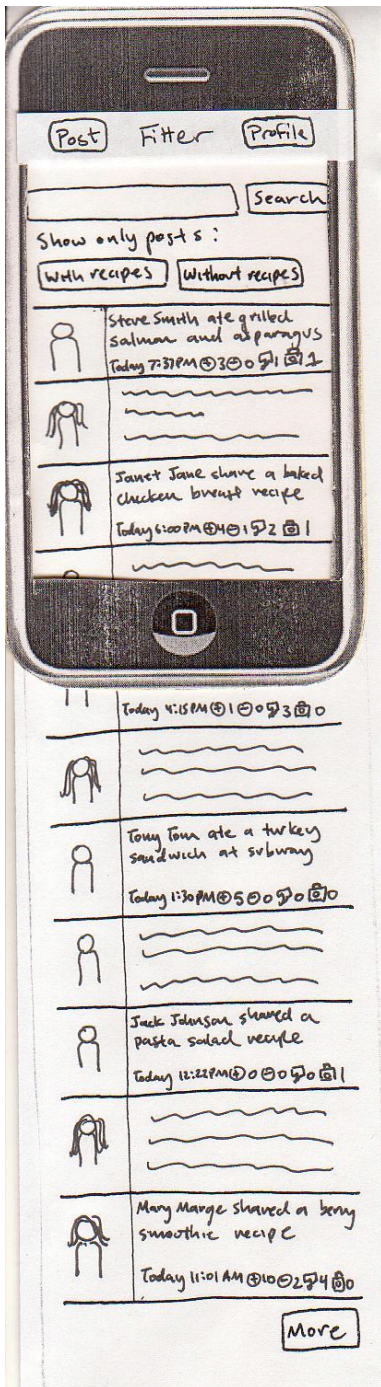 Post Fitter Profile
Search
Show only posts:
With recipes Without recipes
Steve Smith ate grilled
salmon and asparagus
Today 7:37PM + 3 - 0 1 1
Janet Jane share a baked
chicken breast recipe
Today 6:00PM + 4 - 1 2 1
Today 4:15PM + 1 - 0 3 0
Tony Tom ate a turkey
sandwich at subway
Today 1:30PM + 5 - 0 0 0
Jack Johnson shared a
pasta salad recipe
Today 12:22PM + 0 - 0 0 1
Mary Marge shared a berry
smoothie recipe
Today 11:01 AM + 10 - 2 4 0
More